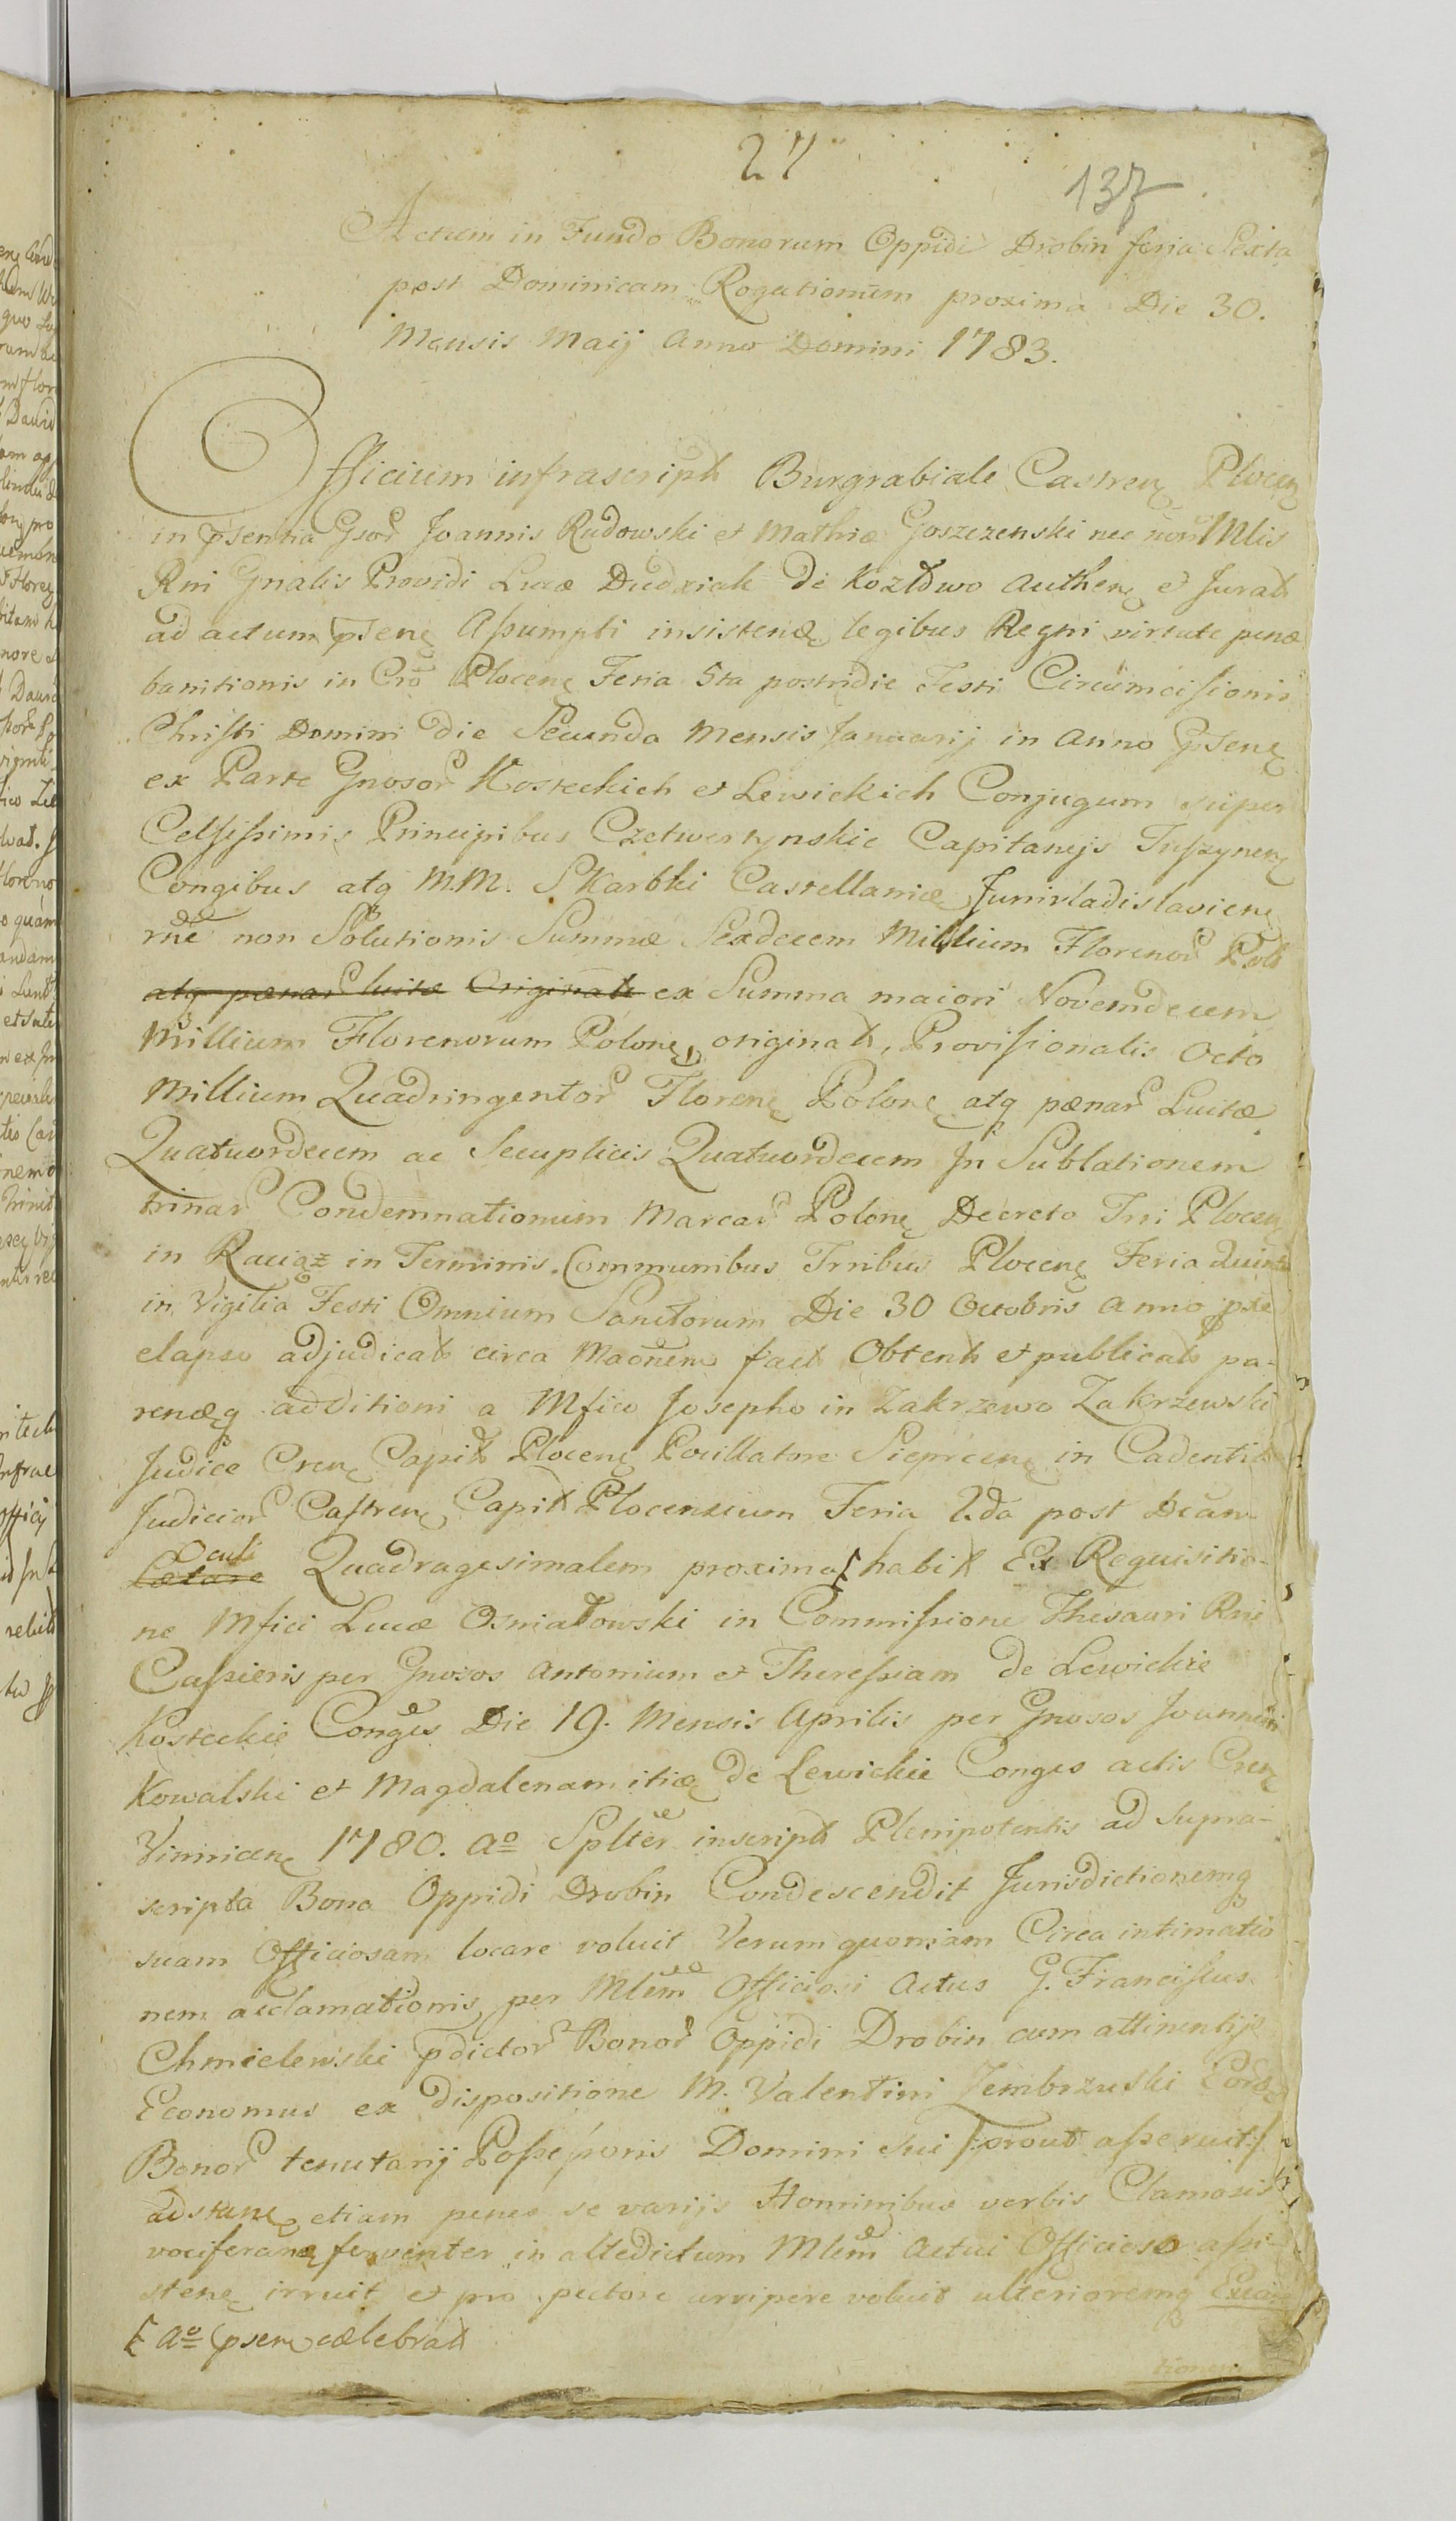 27
137
Actum in Fundo Bonorum Oppidi Drobin feria Sexta
post Dominicam Rogationum proxima Die 30.
Mensis Maij Anno Domini 1783.
Officium infrascript Burgrabiale Castren Plocen
in psentia Gsor Joannis Rudowski et Mathiæ Goszczenski nec non Mlis
Rni Gnalis Providi Lucæ Dudziak de Kozłowo Authen et Jurat
ad actum psen Assumpti insisten legibus Regni virtute penæ
banitionis in Cro Plocen Feria 5ta postridie Festi Circumcisionis
Christi Domini die Secunda Mensis Januarij in Anno psen
ex Parte Gnosor Kosteckich et Lewickich Conjugum super
Celsissimis Principibus Czetwertynskie Capitaneis Tuszynen
Congibus atq M.M. Skarbki Castellaniæ Junivladislavien
rne non Solutionis Summæ Sexdecem Millium Florenor Pol
atq pænar luitæ Originat ex Summa maiori Novemdecem
Millium Florenorum Polon, originat, Provisionalis Octo
Millium Quadringentor Floren Polon atq pænar Luitæ
Quatuordecem ac Secuplicis Quatuordecem In Sublationem
trinar Condemnationum Marcar Polon Decreto Tri Plocen
in Raciąż in Terminis Communibus Trribus Plocen Feria Quinta
in Vigilia Festi Omnium Sanctorum Die 30 Octobris anno pte
elapso adjudicat circa Maonem fact Obtent et publicat pa-
renæq additioni a Mfico Josepho in Zakrzewo Zakrzewski
Judice Cren Capit Plocen Pocillatore Sieprcen in Cadentia
Judicior Castren Capit Plocensium Feria 2da post Dcam
Oculi
Lætare Quadragesimalem proxima habit Ex Requisitio-
ne Mfici Lucæ Osmiałowski in Commissione Thesauri Rni
Cassieris per Gnosos Antonium et Theressiam de Lewickie
Kosteckie Conges Die 19. Mensis Aprilis per Gnosos Joannem
Kowalski et Magdalenam itiæ de Lewickie Conges actis Cren
Vinnicen 1780. ao Splter inscript Plenipotentis ad supra-
scripta Bona Oppidi Drobin Condescendit Jurisdictionemq
suam Officiosam locare voluit Verum quoniam Circa intimatio
nem acclamationis per Mlem Officiosi Actus G. Franciscus
Chmielewski pdictor Bonor Oppidi Drobin cum attinentijs
Economus ex dispositione M. Valentini Zembrzuski Eor
Bonor tenutarij Possessoris Domini sui /:prout asseruit:/
adstan etiam penes se varijs Hominibus verbis Clamosis
vociferan ferventer in altedictum Mlem Actui Officioso assi-
sten irruit et pro pectore arripere voluit ulterioremq Execu
ao psen celebrat
tionem